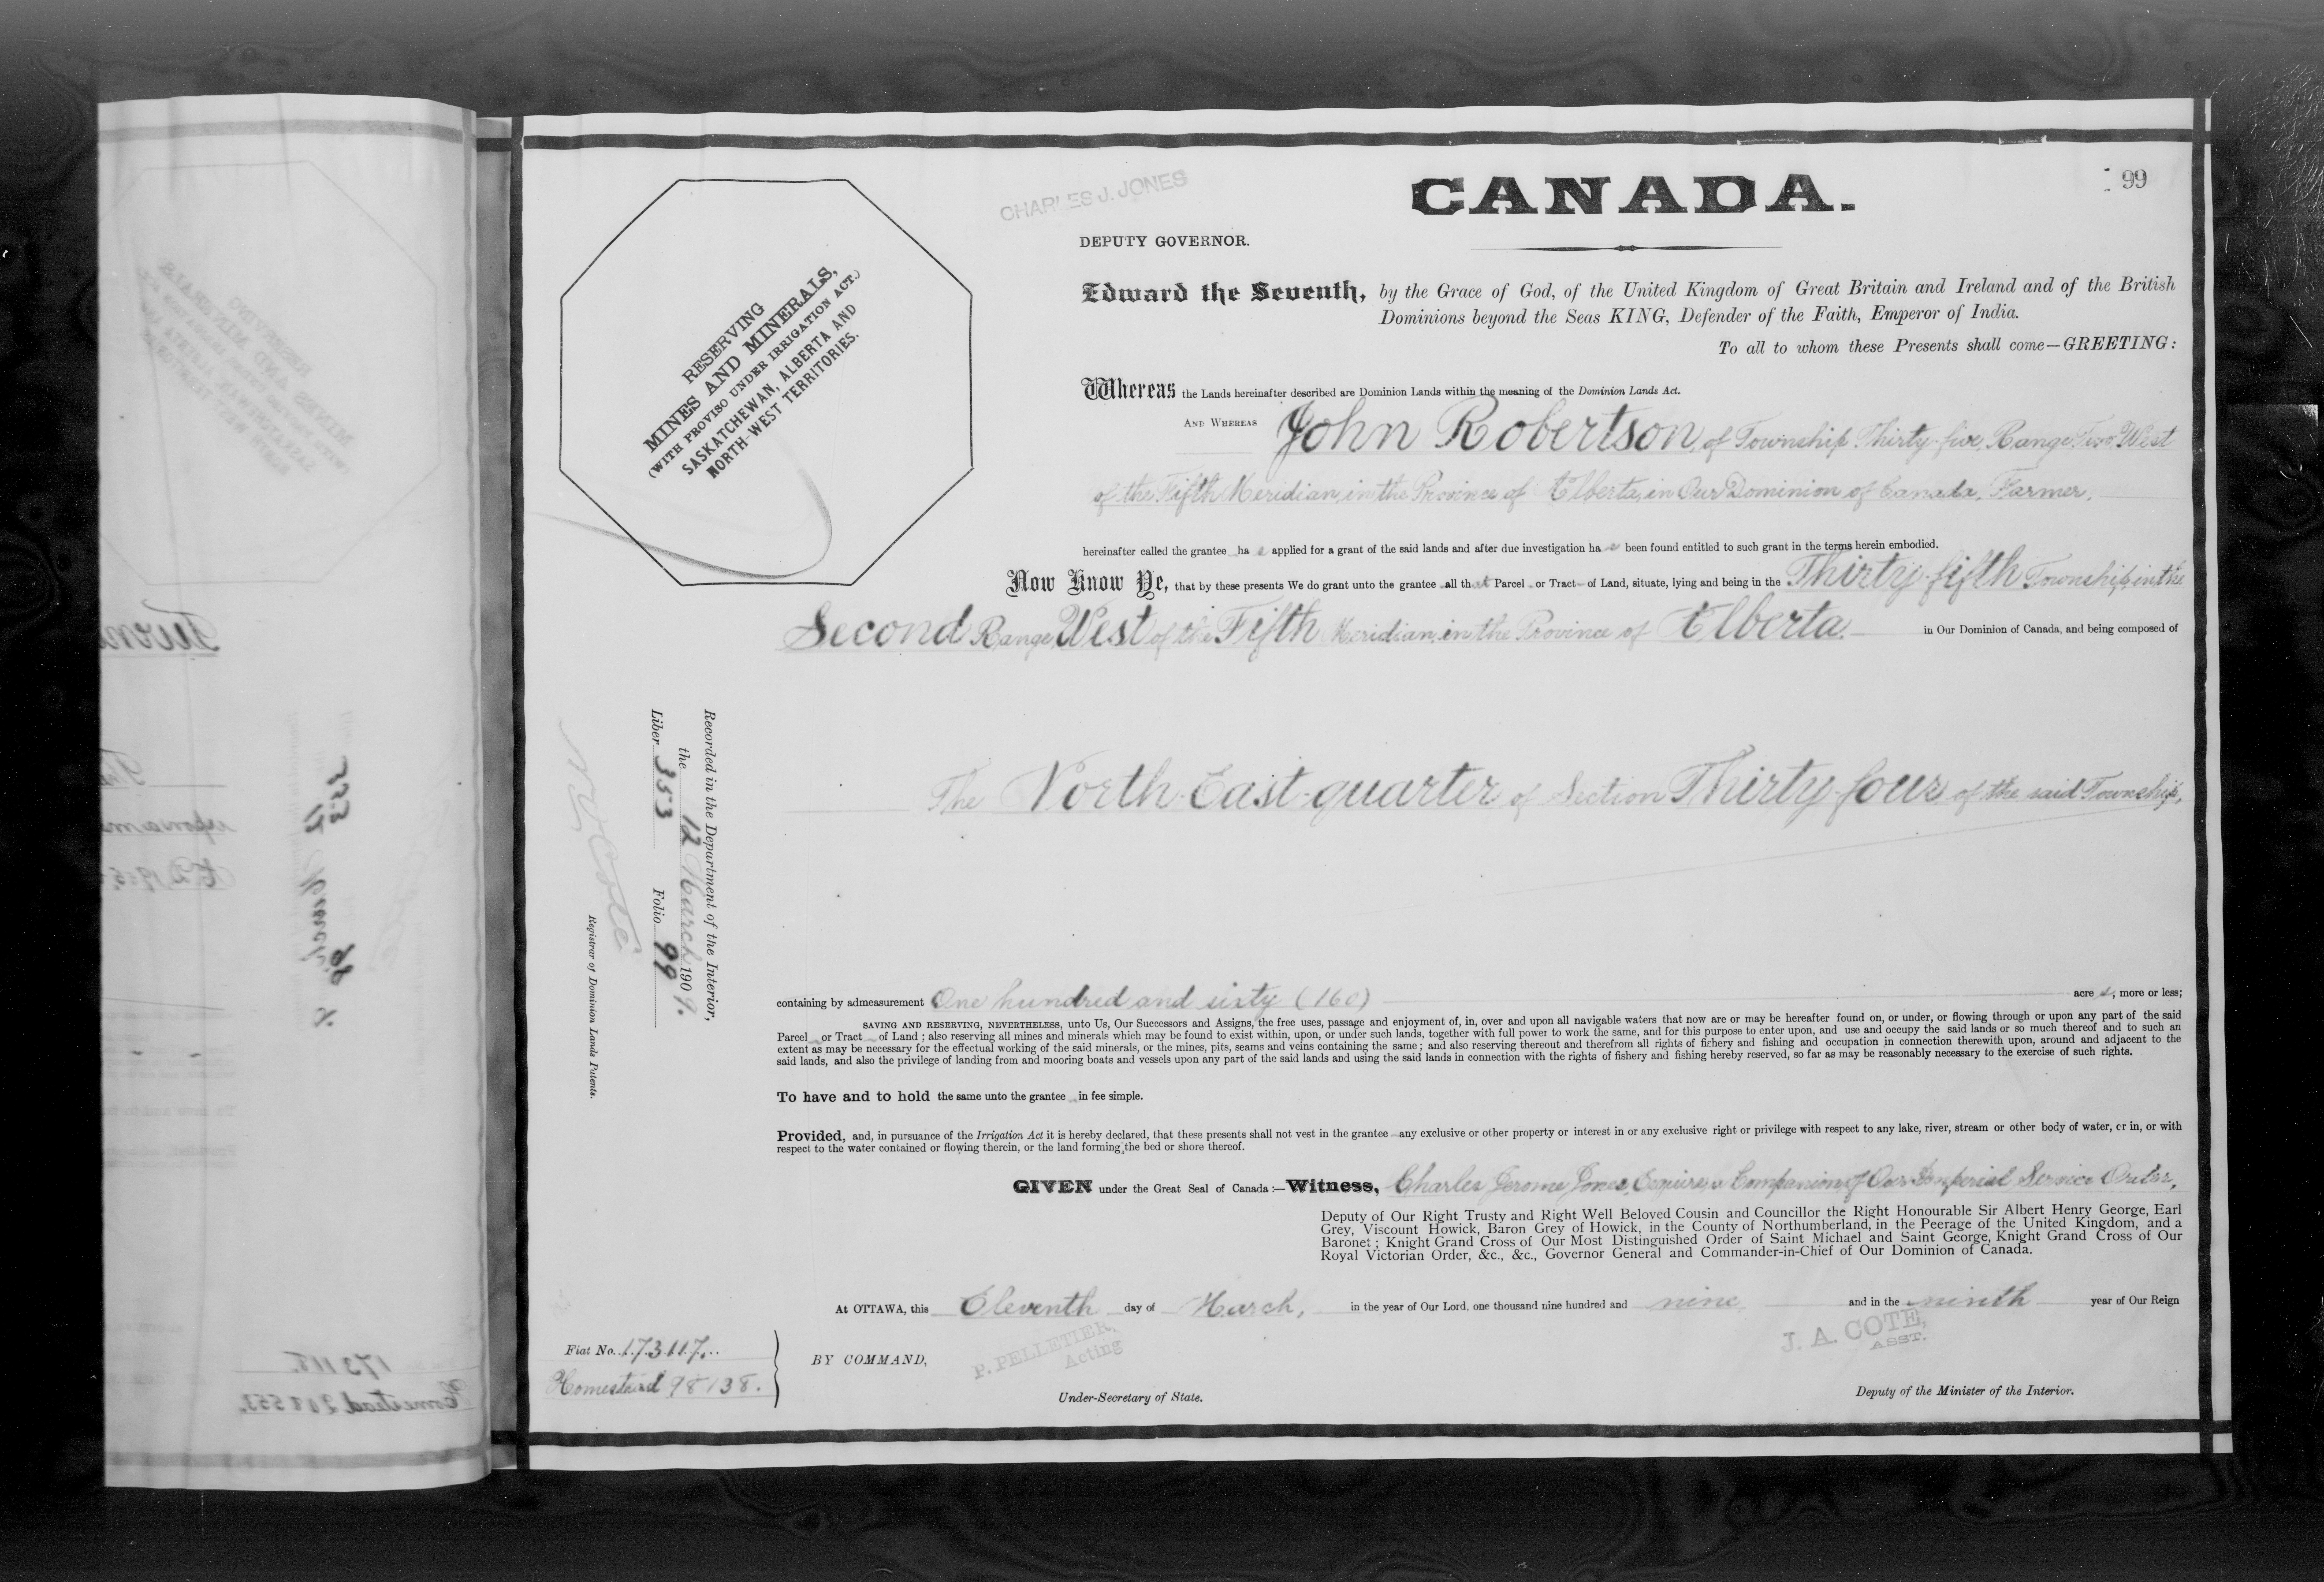 99
CHARLES J. JONES
CANADA.
DEPUTY GOVERNOR.
RESERVING
MINES AND MINERALS,
(WITH PROVISO UNDER IRRIGATION ACT.)
SASKATCHEWAN, ALBERTA AND
NORTH-WEST TERRITORIES.
Edward the Seventh, by the Grace of God, of the United Kingdom of Great Britain and Ireland and of the British
Dominions beyond the Seas KING, Defender of the Faith, Emperor of India.
To all to whom these Presents shall come—GREETING:
Whereas the Lands hereinafter described are Dominion Lands within the meaning of the Dominion Lands Act.
AND WHEREAS John Robertson, of Township Thirty-five, Range Two, West
of the Fifth Meridian, in the Province of Alberta, in Our Dominion of Canada, Farmer,
hereinafter called the grantee has applied for a grant of the said lands and after due investigation has been found entitled to such grant in the terms herein embodied.
Now Know Ye, that by these presents We do grant unto the grantee all that Parcel or Tract of Land, situate, lying and being in the Thirty-fifth Township, in the
Second Range, West of the Fifth Meridian, in the Province of Alberta in Our Dominion of Canada, and being composed of
The North-East-quarter of Section Thirty-four of the said Township,
Recorded in the Department of the Interior,
the 12 March 1909.
Liber 353 Folio 99
N. O. Coté
Registrar of Dominion Lands Patents.
containing by admeasurement One hundred and sixty (160) acres, more or less;
SAVING AND RESERVING, NEVERTHELESS, unto Us, Our Successors and Assigns, the free uses, passage and enjoyment of, in, over and upon all navigable waters that now are or may be hereafter found on, or under, or flowing through or upon any part of the said
Parcel or Tract of Land ; also reserving all mines and minerals which may be found to exist within, upon, or under such lands, together with full power to work the same, and for this purpose to enter upon, and use and occupy the said lands or so much thereof and to such an
extent as may be necessary for the effectual working of the said minerals, or the mines, pits, seams and veins containing the same ; and also reserving thereout and therefrom all rights of fichery and fishing and occupation in connection therewith upon, around and adjacent to the
said lands, and also the privilege of landing from and mooring boats and vessels upon any part of the said lands and using the said lands in connection with the rights of fishery and fishing hereby reserved, so far as may be reasonably necessary to the exercise of such rights.
To have and to hold the same unto the grantee in fee simple.
Provided, and, in pursuance of the Irrigation Act it is hereby declared, that these presents shall not vest in the grantee any exclusive or other property or interest in or any exclusive right or privilege with respect to any lake, river, stream or other body of water, or in, or with
respect to the water contained or flowing therein, or the land forming the bed or shore thereof.
GIVEN under the Great Seal of Canada :—Witness, Charles Jerome Jones, Esquire, a Companion of Our Imperial Service Order,
Deputy of Our Right Trusty and Right Well Beloved Cousin and Councillor the Right Honourable Sir Albert Henry George, Earl
Grey, Viscount Howick, Baron Grey of Howick, in the County of Northumberland, in the Peerage of the United Kingdom, and a
Baronet ; Knight Grand Cross of Our Most Distinguished Order of Saint Michael and Saint George, Knight Grand Cross of Our
Royal Victorian Order, &c., &c., Governor General and Commander-in-Chief of Our Dominion of Canada.
At OTTAWA, this Eleventh day of March, in the year of Our Lord, one thousand nine hundred and nine and in the ninth year of Our Reign
Fiat No. 173117.
Homestead 98138.
BY COMMAND,
P. PELLETIER,
Acting
Under-Secretary of State.
J. A. COTE,
ASST.
Deputy of the Minister of the Interior.